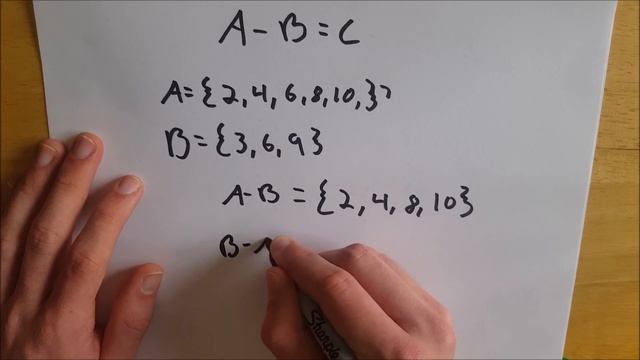 A - B = C
A = {2, 4, 6, 8, 10, }
B = {3, 6, 9}
A - B = {2, 4, 8, 10}
B - A
Sharpie